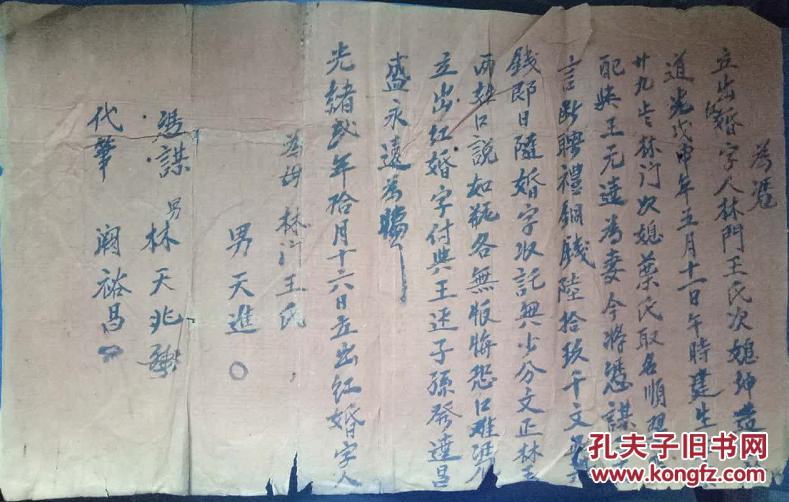 為憑
立出婚字人林門王氏次媳坤造
道光戊申年五月十一日午時建生
廿九歲林门次媳葉氏取名順
配與王元達為妻今将憑謀
言断聘禮銅錢陸拾玖千文
錢即日隨婚字收訖無少分文正林王
两無口說如瓶各無恢悔恐口难
立出红婚字付與王近子孫發達昌
盛永遠為
光緒弍年拾月十六日立出红婚字人
林门王氏
男天進
憑謀 男林天兆
代筆 阙裕昌
孔夫子旧书网
www.kongfz.com